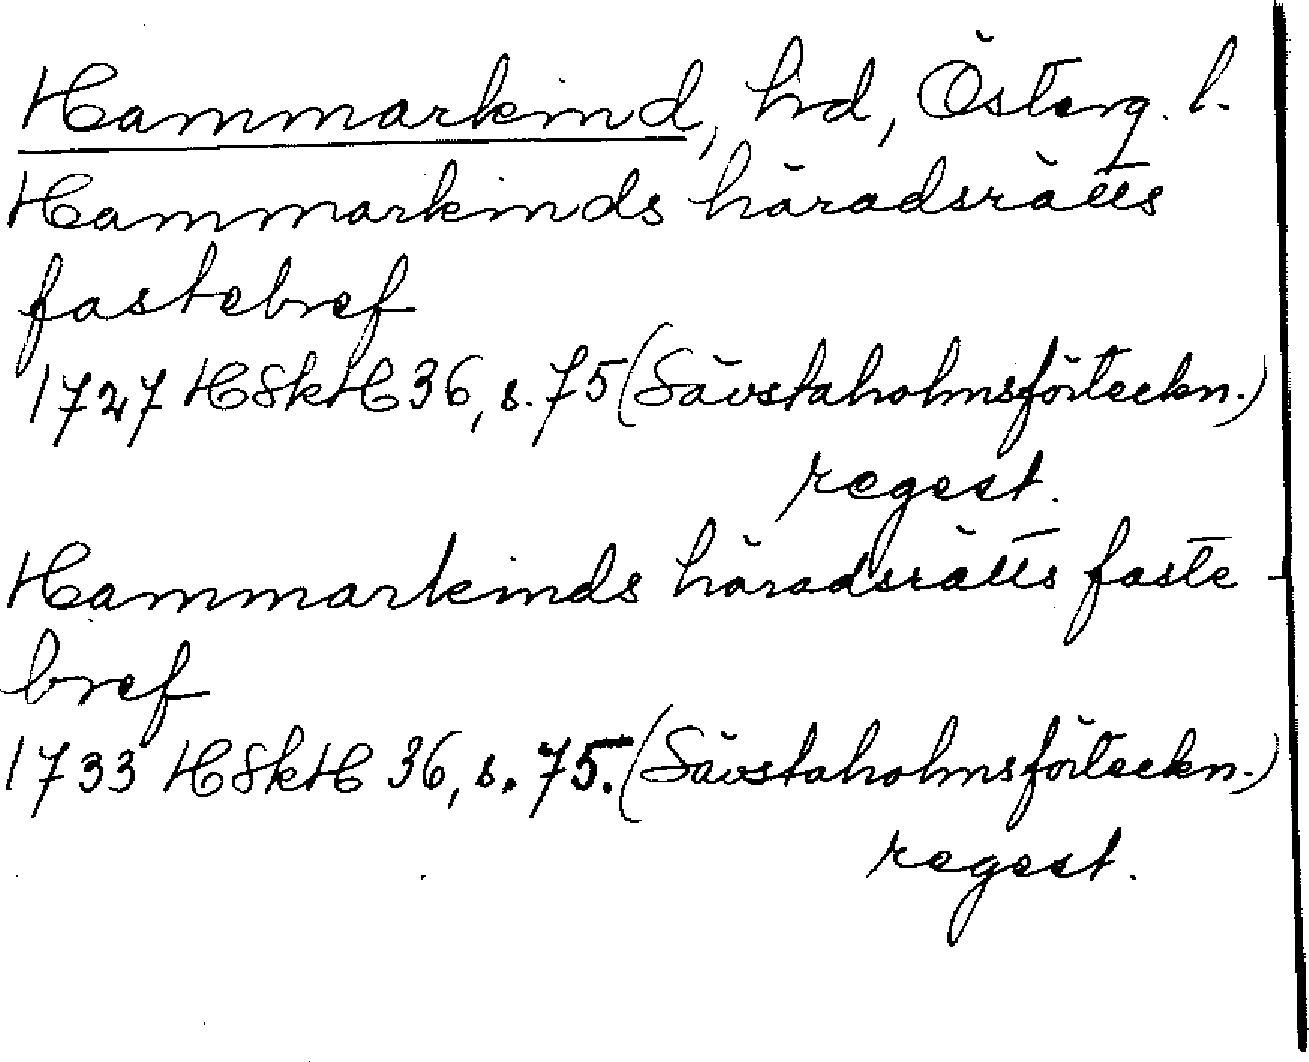 Hammarkind, hd, Österg. l.
Hammarkinds häradsrätts
fastebref
1727 HSkH 36, s. 75 (Sävstaholmsförteckn.)
regest.
Hammarkinds häradsrätts faste-
bref
1733 HSkH 36, s. 75. (Sävstaholmsförteckn.)
regest.